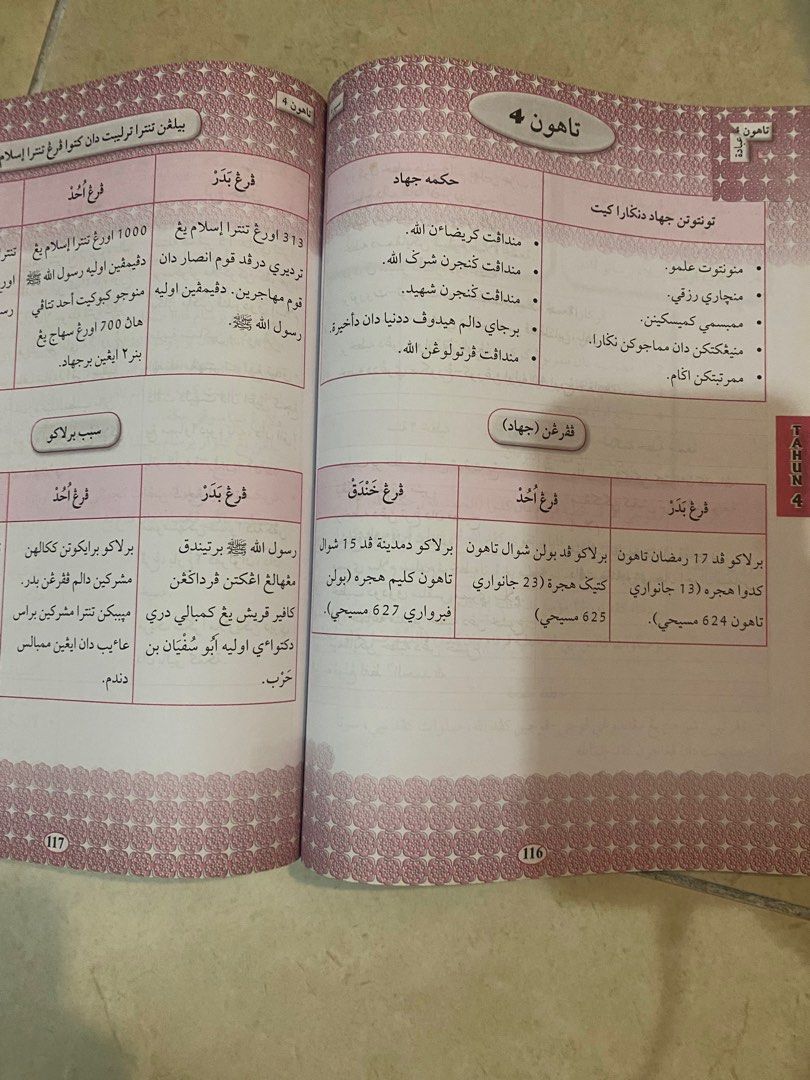 تاهون 4
عبادة
تاهون 4
تونتوتن جهاد دنڬارا كيت
منونتوت علمو.
منچاري رزقي.
ممبسمي كميسكينن.
منيڠكتكن دان مماجوكن نڬارا.
ممرتبتكن اڬام.
حكمه جهاد
منداڤت كريضاءن الله.
منداڤت ڬنجرن شرڬ الله.
منداڤت ڬنجرن شهيد.
برجاي دالم هيدوڤ ددنيا دان دأخيرة.
منداڤت ڤرتولوڠن الله.
ڤڤرڠن (جهاد)
ڤرڠ بَدَرْ
برلاكو ڤد 17 رمضان تاهون
كدوا هجره (13 جانواري
تاهون 624 مسيحي).
ڤرڠ اُحُدْ
برلاكو ڤد بولن شوال تاهون
كتيݢ هجرة (23 جانواري
625 مسيحي)
ڤرڠ خَنْدَقْ
برلاكو دمدينة ڤد 15 شوال
تاهون كليم هجره (بولن
فبرواري 627 مسيحي).
TAHUN 4
116
تاهون 4
بيلڠن تنترا ترليبت دان كتوا ڤرڠ تنترا إسلام
ڤرڠ بَدَرْ
313 اورڠ تنترا إسلام يڠ
ترديري درڤد قوم انصار دان
قوم مهاجرين. دڤيمڤين اوليه
رسول الله ﷺ.
ڤرڠ اُحُدْ
1000 اورڠ تنترا إسلام يڠ
دڤيمڤين اوليه رسول الله ﷺ
منوجو كبوكيت أحد تتاڤي
هاڽ 700 اورڠ سهاج يڠ
بنر٢ ايڠين برجهاد.
سبب برلاكو
ڤرڠ بَدَرْ
رسول الله ﷺ برتيندق
مڠهالڠ اڠكتن ڤرداڬڠن
كافير قريش يڠ كمبالي دري
دكتواءي اوليه اَبُو سُفْيَان بن
حَرْب.
ڤرڠ اُحُدْ
برلاكو برايكوتن ككالهن
مشركين دالم ڤڤرڠن بدر.
مڽببكن تنترا مشركين براس
عاءيب دان ايڠين ممبالس
دندم.
117